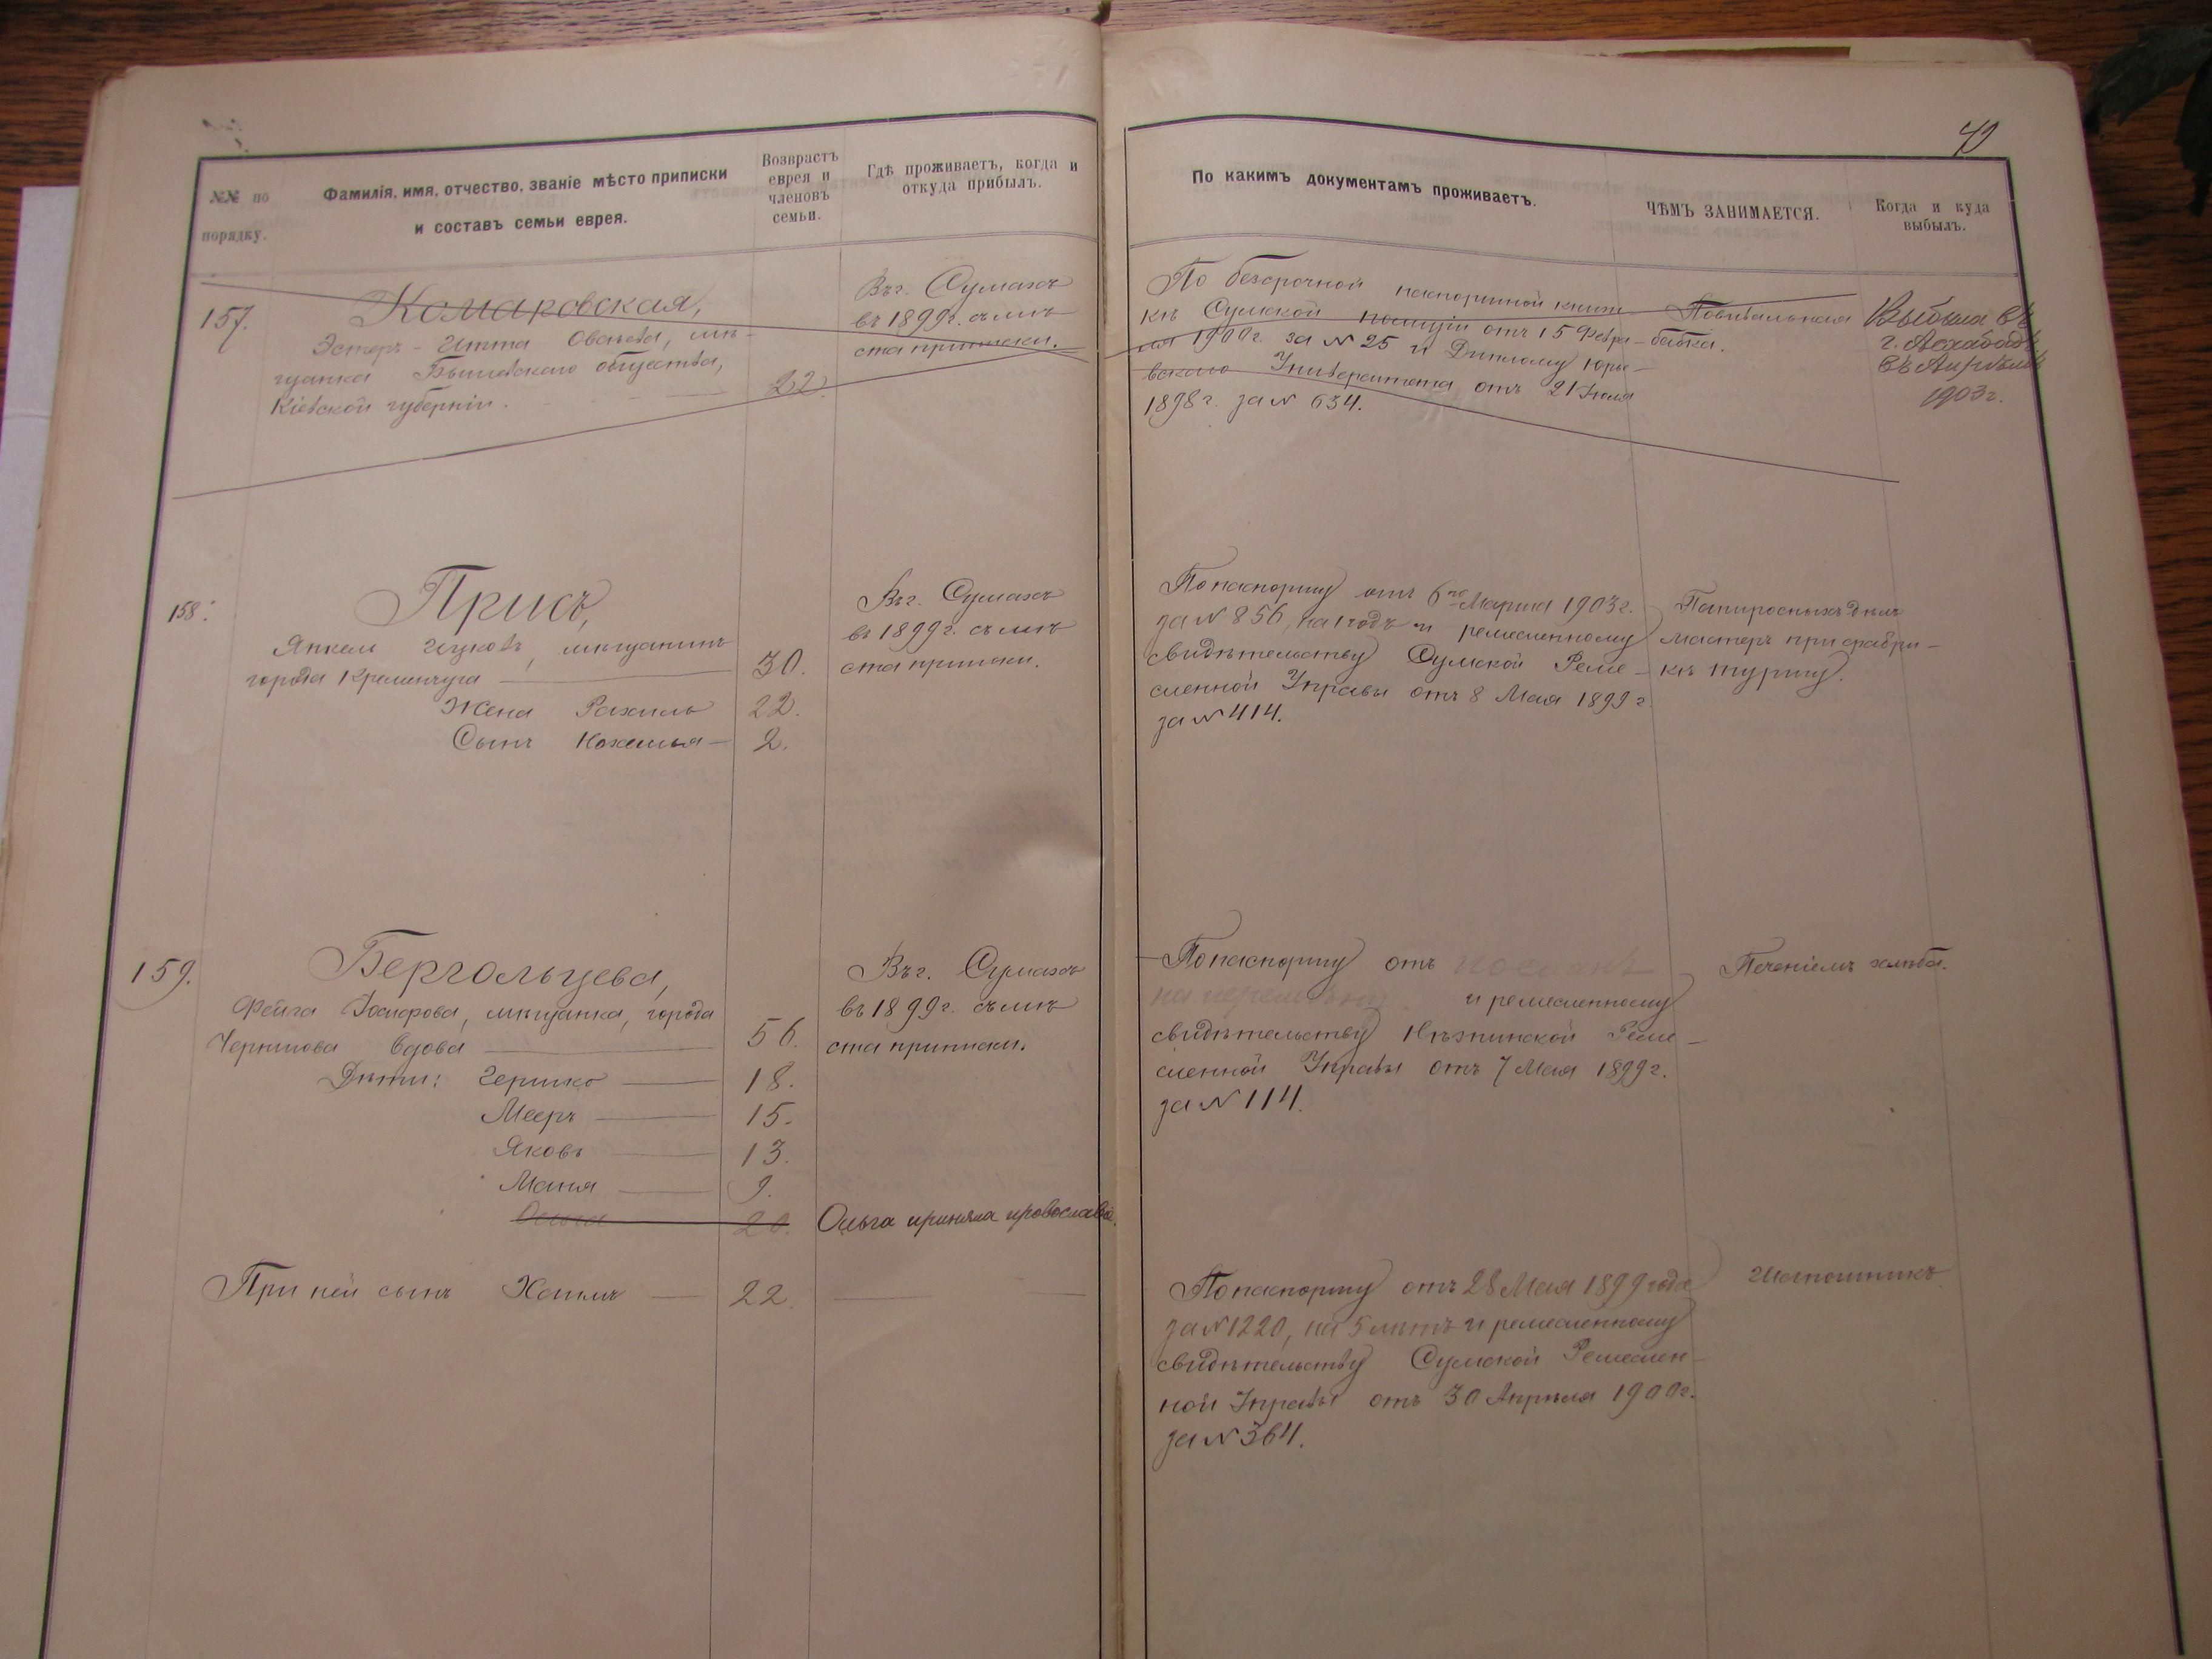 40
№№ по
порядку.
Фамилія, имя, отчество, званіе мѣсто приписки
и составъ семьи еврея.
Возврастъ
еврея и
членовъ
семьи.
Гдѣ проживаетъ, когда и
откуда прибылъ.
По какимъ документамъ проживаетъ.
ЧѢМЪ ЗАНИМАЕТСЯ.
Когда и куда
выбылъ.
157.
Комаровская,
Эстеръ-Итта Овсѣева, мѣ-
щанка Бышевскаго общества,
Кіевской губерніи.
22.
Въ г. Сумахъ
въ 1899 г. съ мѣ-
ста приписки.
По безсрочной паспортной книж-
кѣ Сумской полиціи отъ 15 Февра-
ля 1900 г. за № 25 и Диплому Юрь-
евскаго Университета отъ 21 Іюля
1898 г. за № 634.
Повивальная
бабка.
Выбыла въ
г. Асхабадъ
въ Апрѣлѣ
1903 г.
158.
Присъ,
Янкель Ицковъ, мѣщанинъ
города Кременчуга
30.
Жена Рахиль 22.
Сынъ 2.
Въ г. Сумахъ
въ 1899 г. съ мѣ-
ста приписки.
По паспорту отъ 6го Марта 1903 г.
за № 856, на 1 годъ и ремесленному
свидѣтельству Сумской Реме-
сленной Управы отъ 8 Мая 1899 г
за № 414.
Папиросныхъ дѣлъ
мастеръ при фабри-
кѣ
159.
Бергольцева,
Фейга мѣщанка, города
Чернигова вдова 56.
Дѣти: Гершко 18.
Мееръ 15.
Яковъ 13.
Маня 9.
Ольга 20.
Въ г. Сумахъ
въ 1899 г. съ мѣ-
ста приписки.
Ольга приняла провославіе.
По паспорту отъ
и ремесленному
свидѣтельству Нѣжинской Реме-
сленной Управы отъ 7 Мая 1899 г.
за № 114.
Печеніемъ хлѣба.
При ней сынъ Хаимъ 22.
По паспорту отъ 28 Мая 1899 года
за № 1220, на 5 лѣтъ и ремесленному
свидѣтельству Сумской Ремеслен-
ной Управы отъ 30 Апрѣля 1900 г.
за № 364.
Шапошникъ